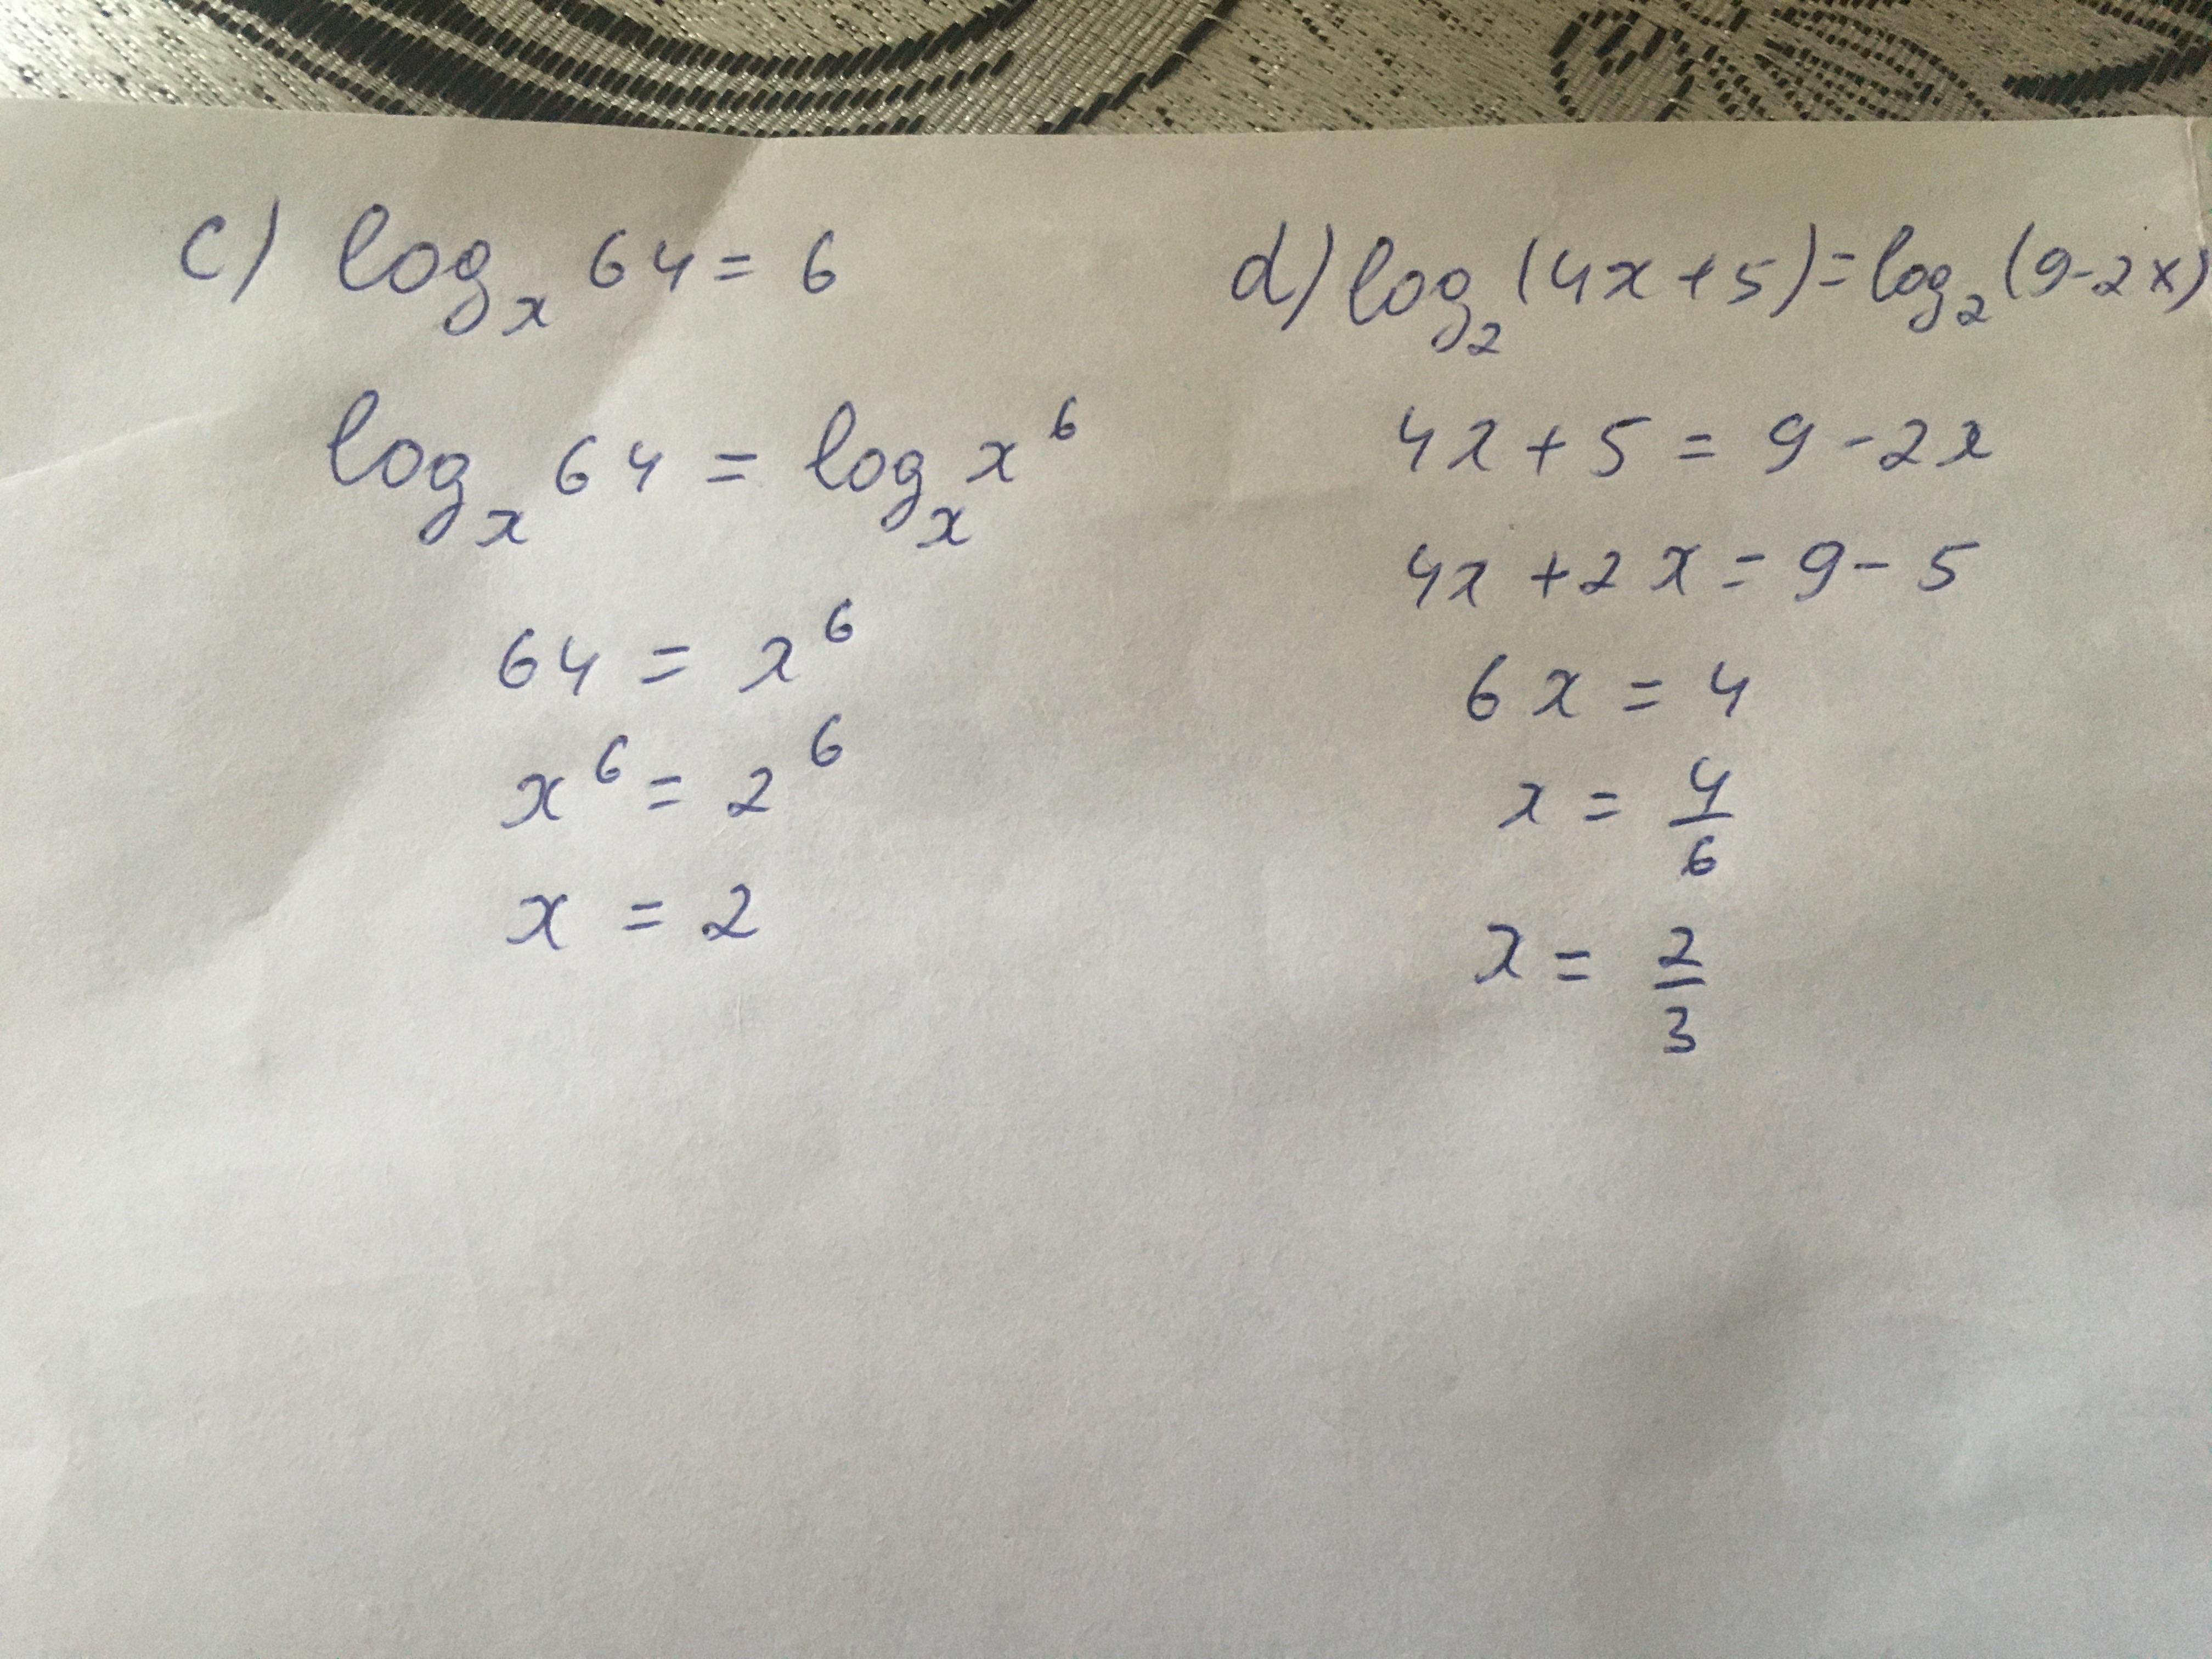 c) log_x 64 = 6
log_x 64 = log_x x^6
64 = x^6
x^6 = 2^6
x = 2
d) log_2 (4x + 5) = log_2 (9 - 2x)
4x + 5 = 9 - 2x
4x + 2x = 9 - 5
6x = 4
x = 4/6
x = 2/3